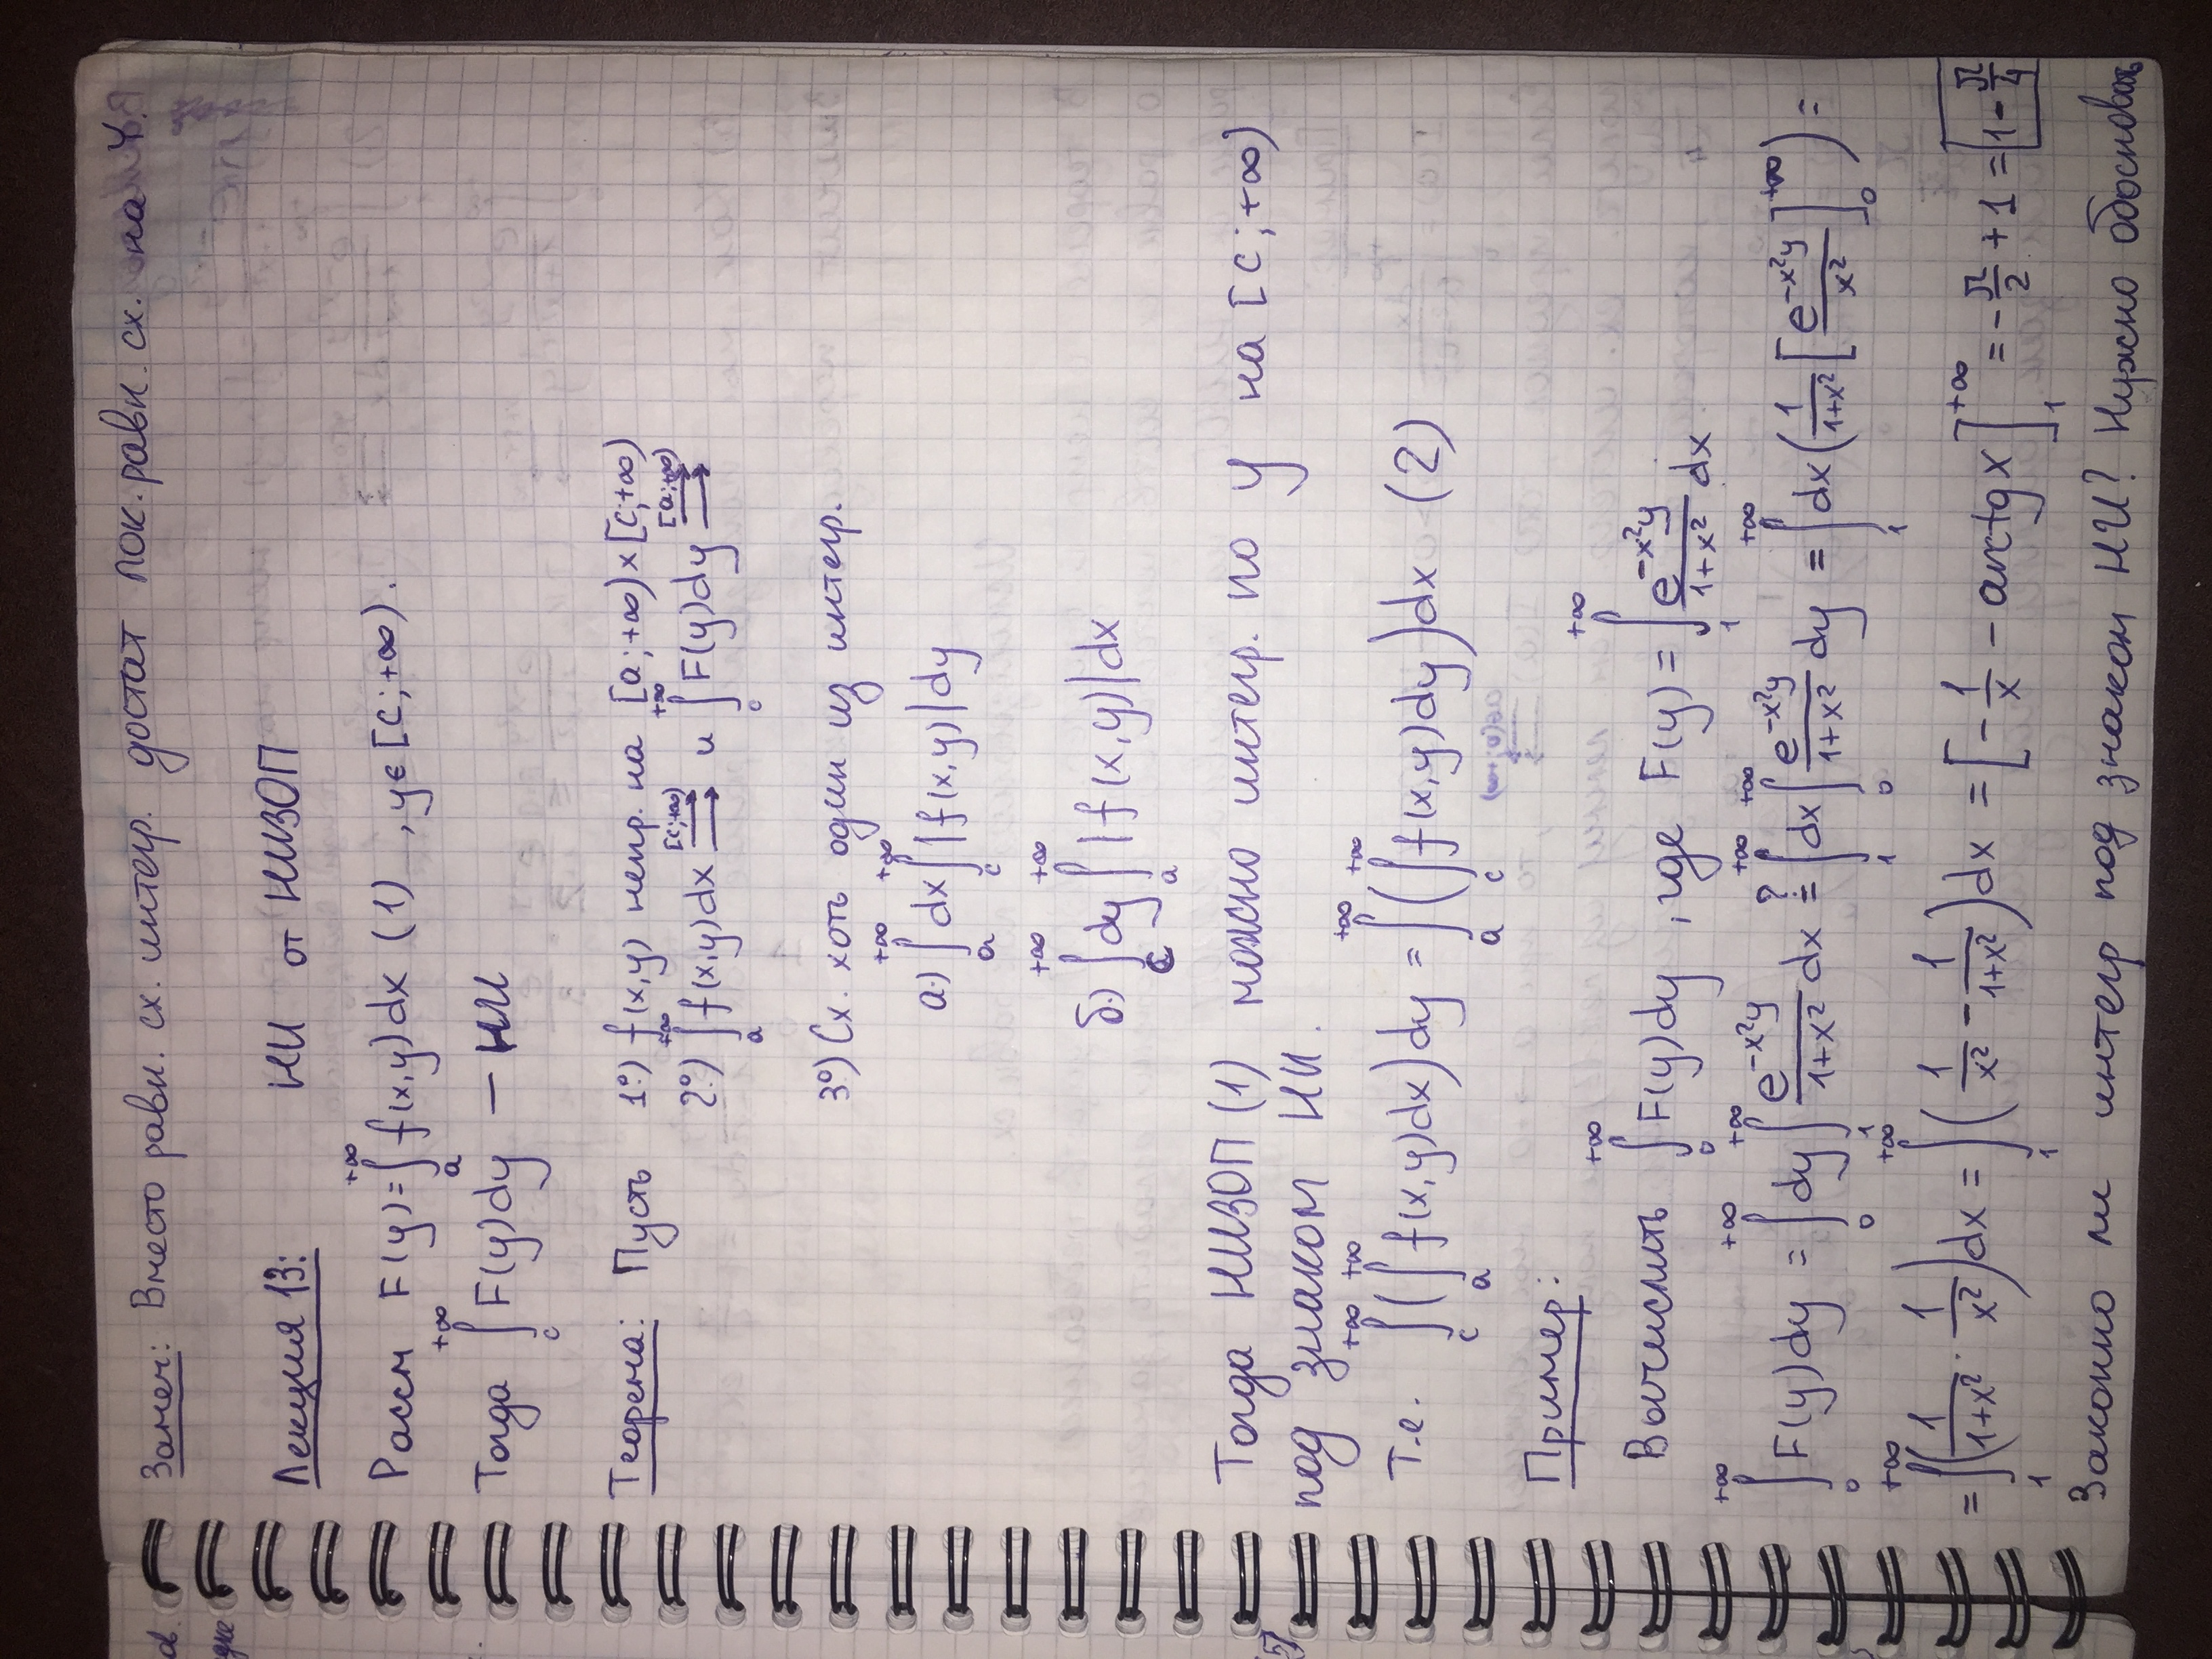 Замеч: Вместо равн. сх. интегр. достат пок. равн. сх. на Y.
Лекция 13: НИ от НИЗОП
Рассм F(y)=∫_a^{+∞} f(x,y)dx (1) , y∈[c;+∞).
Тогда ∫_c^{+∞} F(y)dy — НИ
Теорема: Пусть 1°) f(x,y) непр. на [a;+∞)×[c;+∞)
2°) ∫_a^{+∞} f(x,y)dx ⇉^{[c;+∞)} и ∫_c^{+∞} F(y)dy ⇉^{[a;+∞)}
3°) Сх. хоть один из интегр.
а.) ∫_a^{+∞} dx ∫_c^{+∞} |f(x,y)|dy
б.) ∫_c^{+∞} dy ∫_a^{+∞} |f(x,y)|dx
Тогда НИЗОП (1) можно интегр. по y на [c;+∞)
под знаком НИ.
Т.е. ∫_c^{+∞} (∫_a^{+∞} f(x,y)dx)dy = ∫_a^{+∞} (∫_c^{+∞} f(x,y)dy)dx (2)
Пример:
Вычислить ∫_0^{+∞} F(y)dy , где F(y) = ∫_1^{+∞} \frac{e^{-x²y}}{1+x²} dx
∫_0^{+∞} F(y)dy = ∫_0^{+∞} dy ∫_1^{+∞} \frac{e^{-x²y}}{1+x²} dx =^? ∫_1^{+∞} dx ∫_0^{+∞} \frac{e^{-x²y}}{1+x²} dy = ∫_1^{+∞} dx (\frac{1}{1+x²} [\frac{e^{-x²y}}{x²}]_0^{+∞}) =
= ∫_1^{+∞} (\frac{1}{1+x²} · \frac{1}{x²})dx = ∫_1^{+∞} (\frac{1}{x²} - \frac{1}{1+x²})dx = [-\frac{1}{x} - arctg x]_1^{+∞} = -\frac{π}{2} + 1 = 1-\frac{π}{4}
Законно ли интегр под знаком НИ? Нужно обосновать